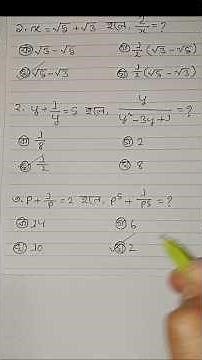 ১. x = √5 + √3 হলে, 1/x = ?
ক) √5 - √3 খ) 1/2 (√3 - √5)
গ) √5 - √3 ঘ) 1/2 (√5 - √3)
২. y + 1/y = 5 হলে, y/(y² - 3y + 1) = ?
ক) 1/8 খ) 2
গ) 1/2 ঘ) 8
৩. P + 1/P = 2 হলে, P⁵ + 1/P⁵ = ?
ক) 14 খ) 6
গ) 10 ঘ) 2